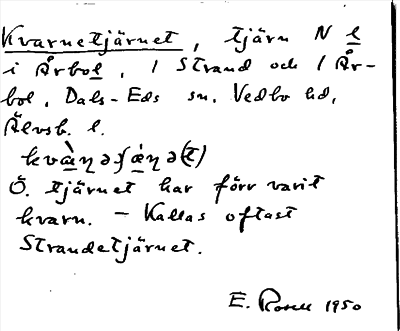 Kvarnetjärnet, tjärn N l
i Årbol, 1 Strand och 1 År-
bol, Dals-Eds sn, Vedbo hd,
Älvsb. l.
kvà̱ɳəʃæ̱̀ɳə(t)
Ö. tjärnet har förr varit
kvarn. – Kallas oftast
Strandetjärnet.
E. Rosell 1950